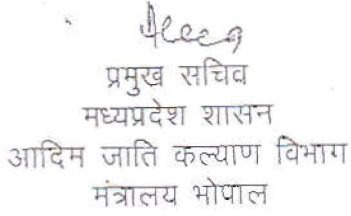 प्रमुख सचिव
मध्यप्रदेश शासन
आदिम जाति कल्याण विभाग
मंत्रालय भोपाल